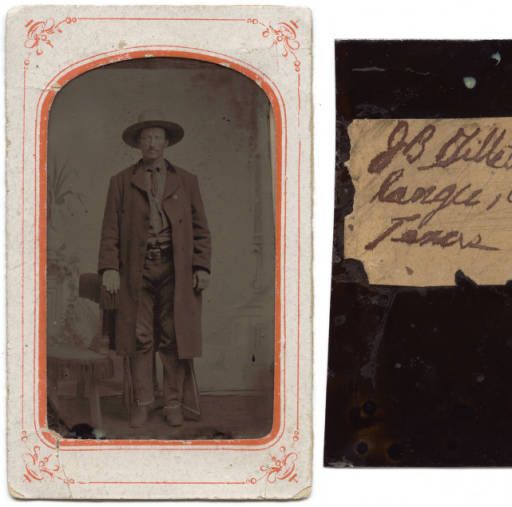 JB Gillet
Ranger,
Texas